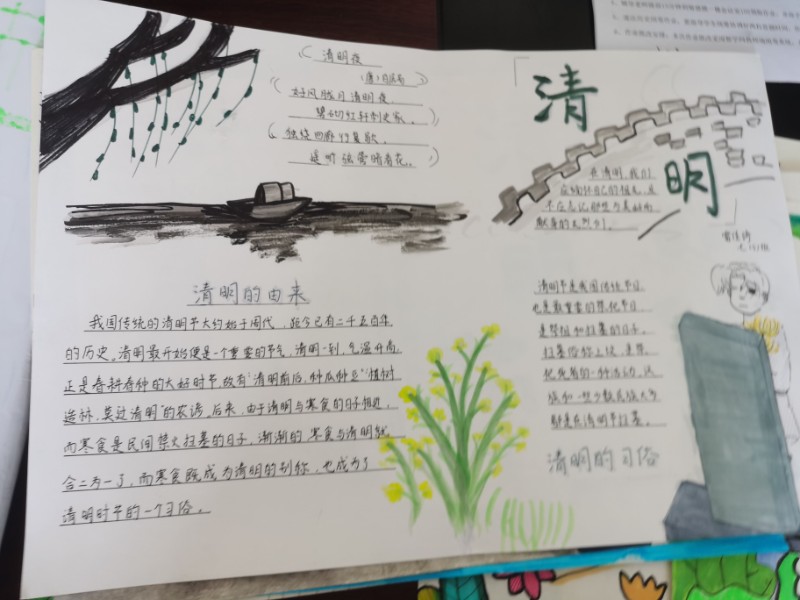 清明夜
(唐)白居易
好风胧月清明夜，
碧砌红轩刺史家。
独绕回廊行复歇，
遥听弦管暗看花。
清
明
在清明，我们
应缅怀自己的祖先，且
不应忘记那些为
献身的先烈们。
清明的由来
我国传统的清明节大约始于周代，距今已有二千五百年
的历史。清明最开始便是一个重要的节气，清明一到，气温升高，
正是春耕春种的大好时节，故有“清明前后，种瓜种豆”“植树
造林，莫过清明”的农谚。后来，由于清明与寒食的日子相近，
而寒食是民间禁火扫墓的日子，渐渐的，寒食与清明就
合二为一了，而寒食既成为清明的别称，也成为了
清明时节的一个习俗。
清明节是我国传统节日
也是最重要的祭祀节日
是祭祖和扫墓的日子。
扫墓俗称上坟，是祭
祀死者的一种活动，汉
族和一些少数民族大多
都是在清明节扫墓。
清明的习俗